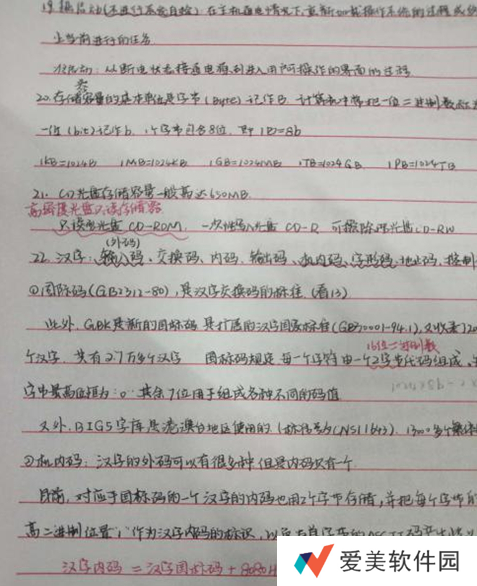 19. 热启动(不进行系统自检): 在主机通电情况下,重新加载操作系统的过程或终
止当前进行的任务
冷启动: 从断电状态接通电源到进入用户可操作的界面的过程
20. 存储容量的基本单位是字节(Byte)记作B. 计算机中常把一位二进制数称为
一位(bit)记作b. 1个字节包含8位, 即1B=8b
1KB=1024B 1MB=1024KB 1GB=1024MB 1TB=1024GB 1PB=1024TB
21. CD光盘存储容量一般高达650MB.
高密度光盘只读存储器
只读型光盘 CD-ROM, 一次性写入光盘 CD-R 可擦除型光盘CD-RW
(外码)
22. 汉字: 输入码、交换码、内码、输出码、机内码、字形码、地址码、控制
①国际码(GB2312-80), 是汉字交换码的标准 (看13)
此外, GBK是新的国标码 是扩展的汉字国家标准(GB13001-94.1), 又收录了20
16位二进制数
个汉字, 共有2.7万多个汉字 国标码规定 每一个字符由一个2字节代码组成,
字中最高位恒为"0" 其余7位用于组成各种不同的码值
又外, BIG5字库是港澳台地区使用的 (标识号为CNS11643), 13000多个繁体
②机内码: 汉字的外码可以有很多种 但是内码只有一个
目前, 对应于国标码的一个汉字的内码也用2个字节存储,并把每个字节的
高二进制位置"1"作为汉字内码的标识,
汉字内码 = 汉字国标码 + 8080H
爱美软件园